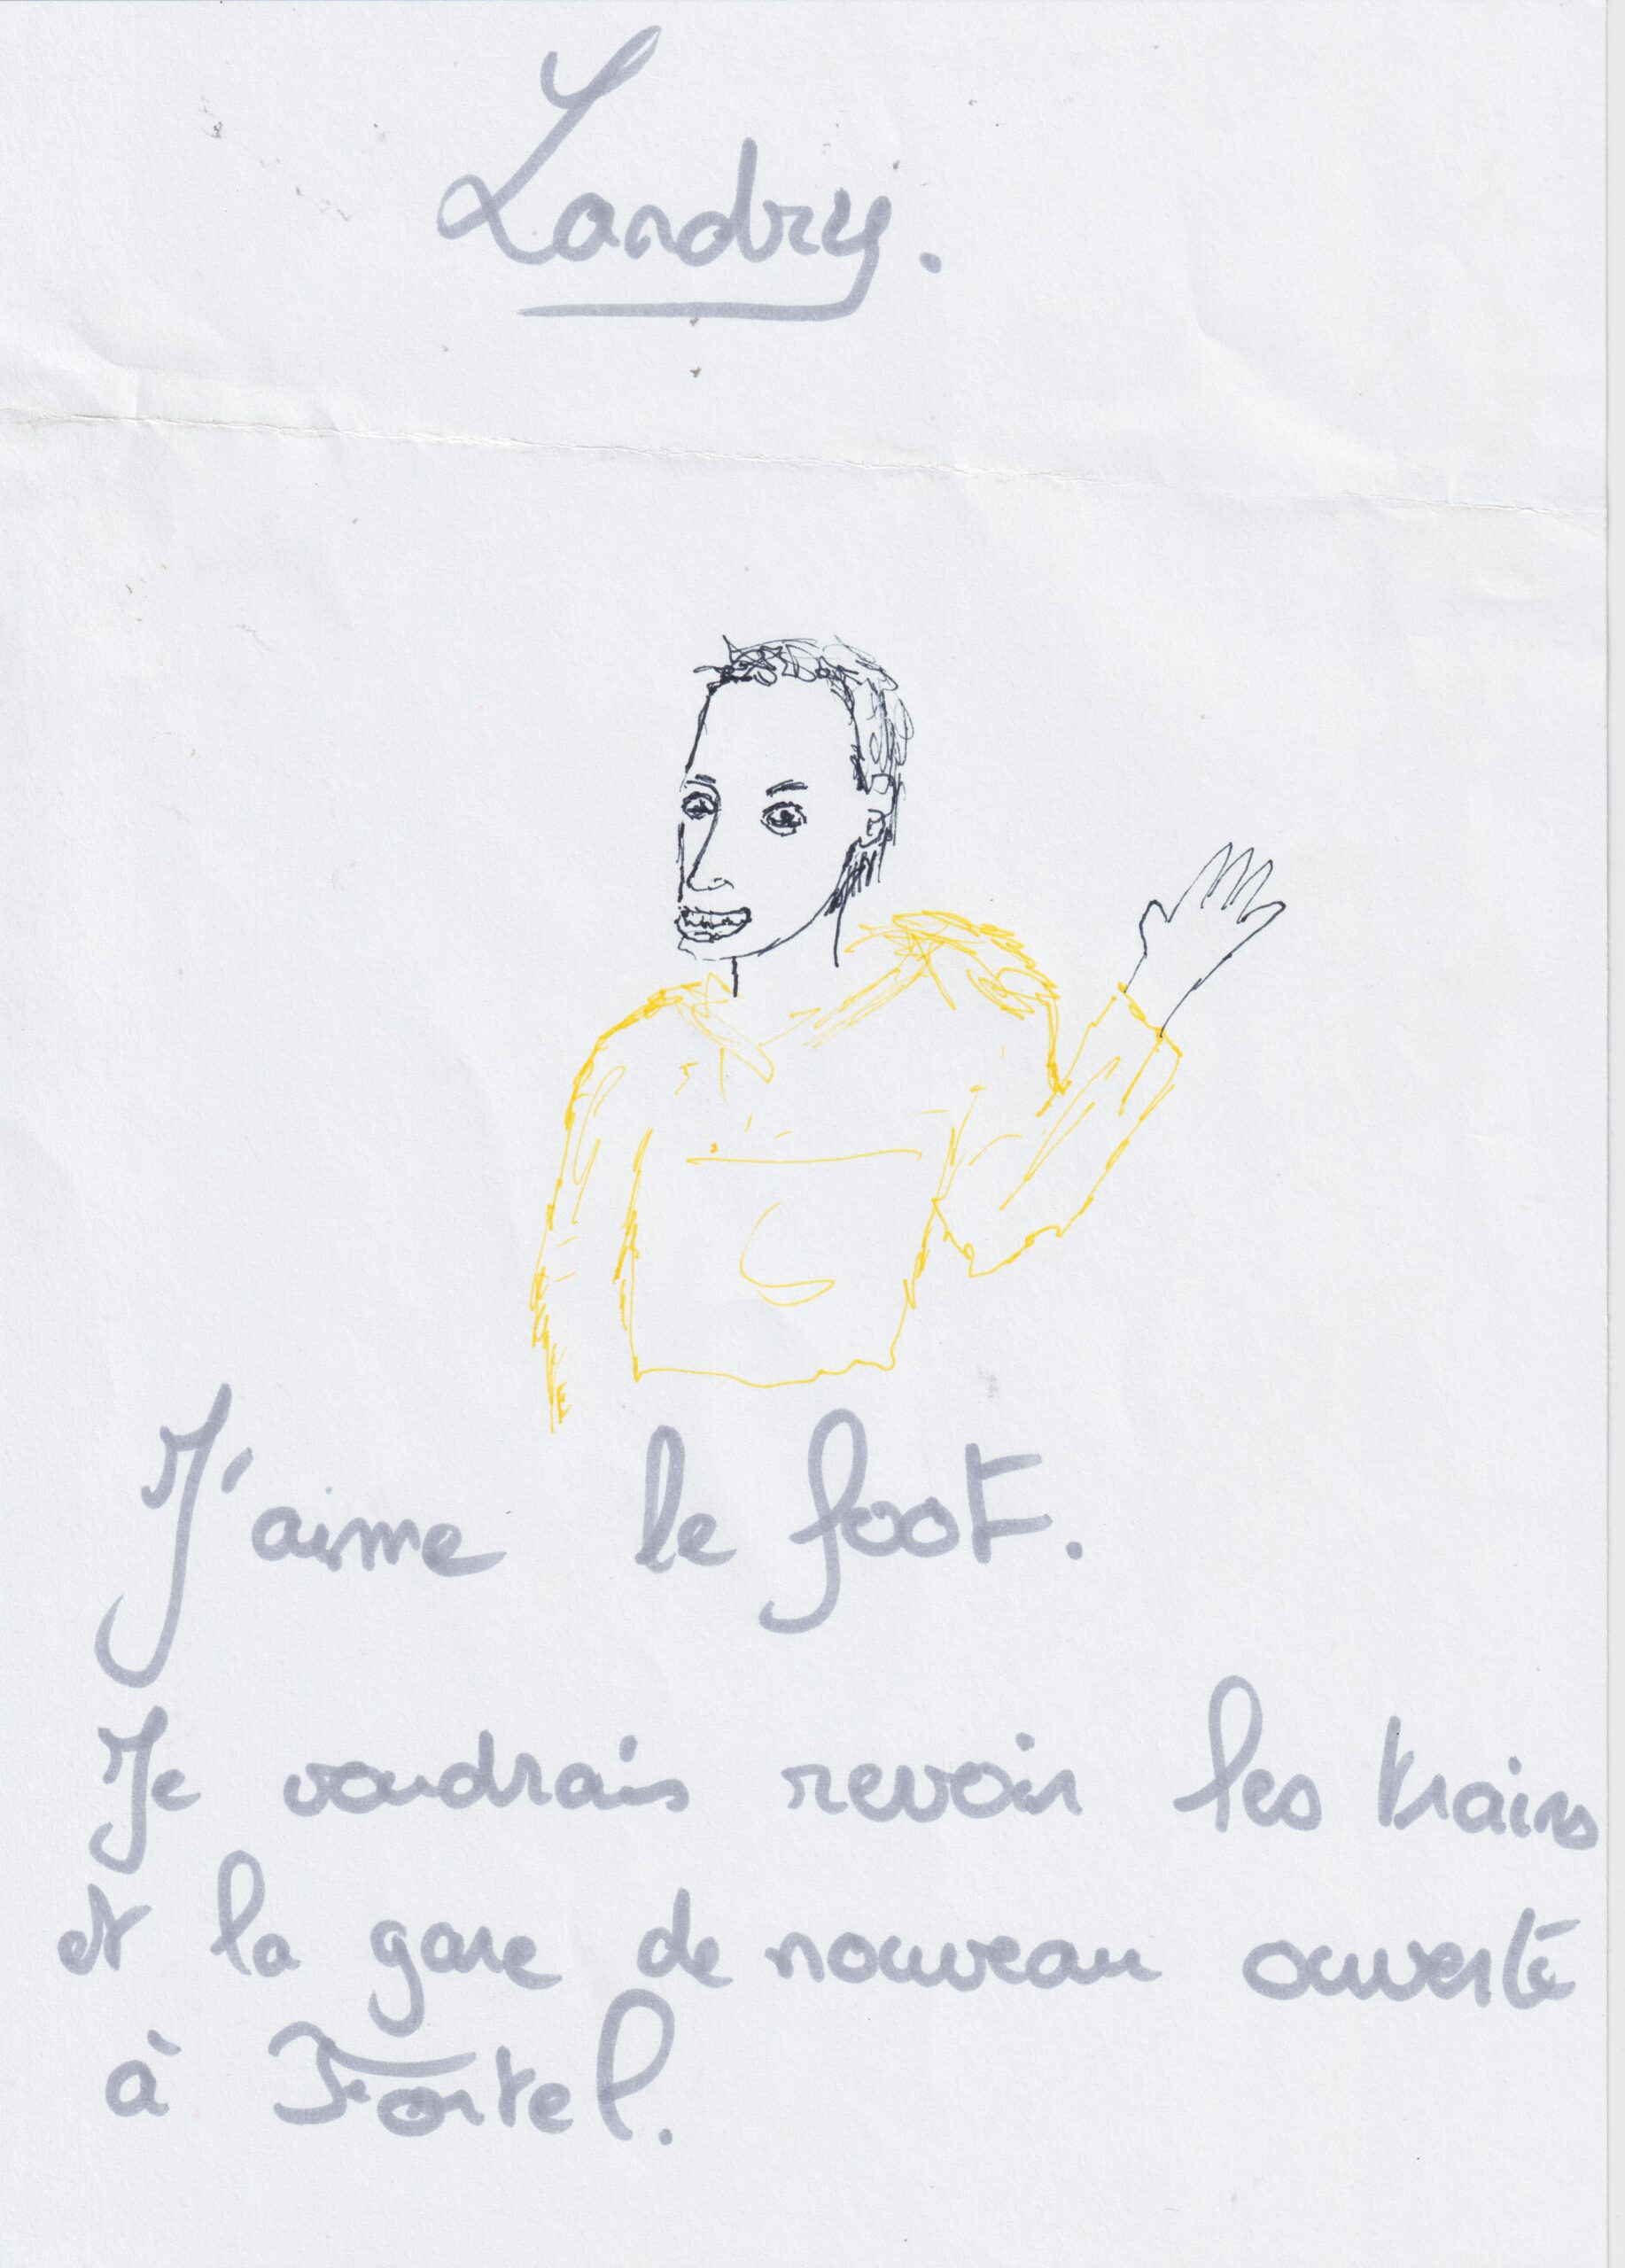 Landry.
J'aime le foot.
Je voudrais revoir les trains
et la gare de nouveau ouverte
à Fortel.